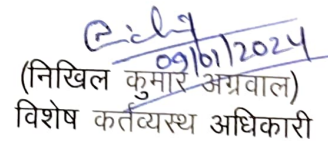 09/01/2024
(निखिल कुमार अग्रवाल)
विशेष कर्तव्यस्थ अधिकारी